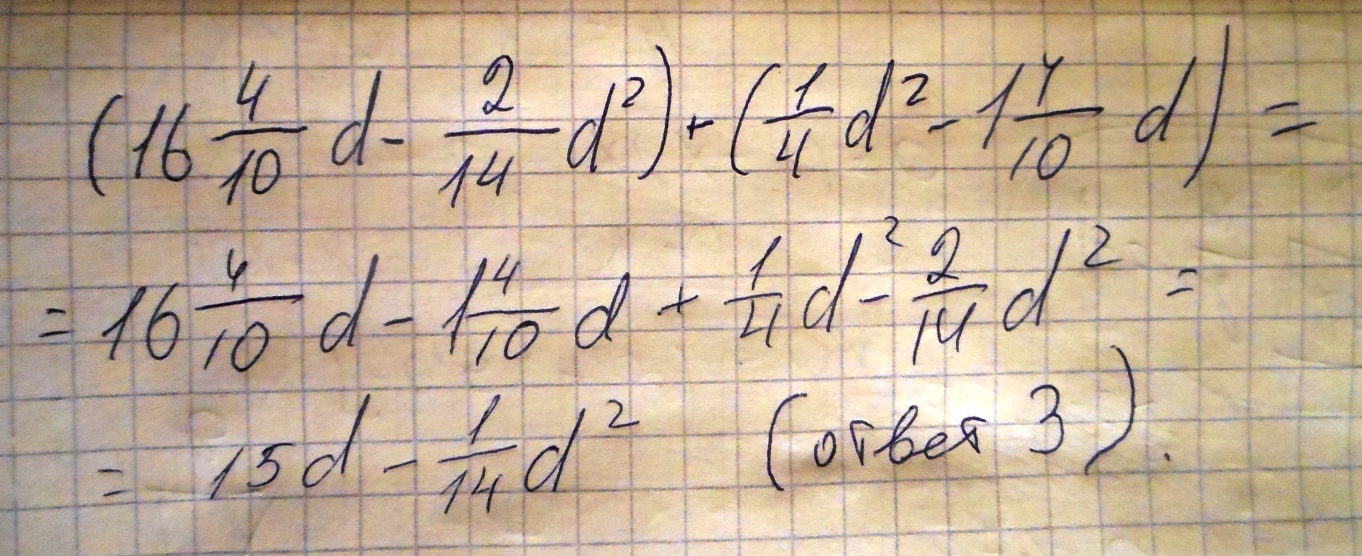 (16 4/10 d - 2/14 d²) + (1/4 d² - 1 4/10 d) =
= 16 4/10 d - 1 4/10 d + 1/4 d² - 2/14 d² =
= 15d - 1/14 d² (ответ 3).